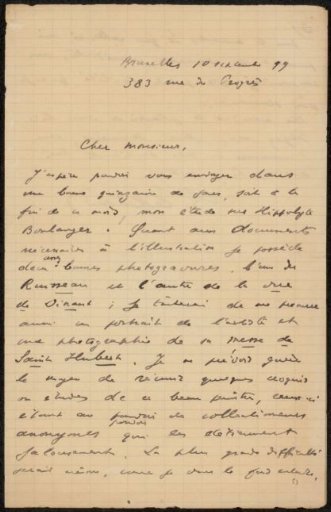 Bruxelles 10 novembre 99
383 rue du Progrès
Cher Monsieur,
J'espère pouvoir vous envoyer dans
une bonne quinzaine de jours, soit à la
fin de ce mois, mon étude sur Hippolyte
Boulanger. Quant aux documents
nécessaires à l'illustration je possède
deux bonnes photogravures, l'une du
Ruisseau et l'autre de la vue
de Dinant; je tâcherai de me procurer
aussi un portrait de l'artiste et
une photographie de sa messe de
Saint Hubert. Je ne prévois guère
le moyen de réunir quelques croquis
ou études de ce beau peintre, ceux-ci
étant au pouvoir de collectionneurs
anonymes qui les détiennent
jalousement. La plus grande difficulté
serait même, comme je vous le